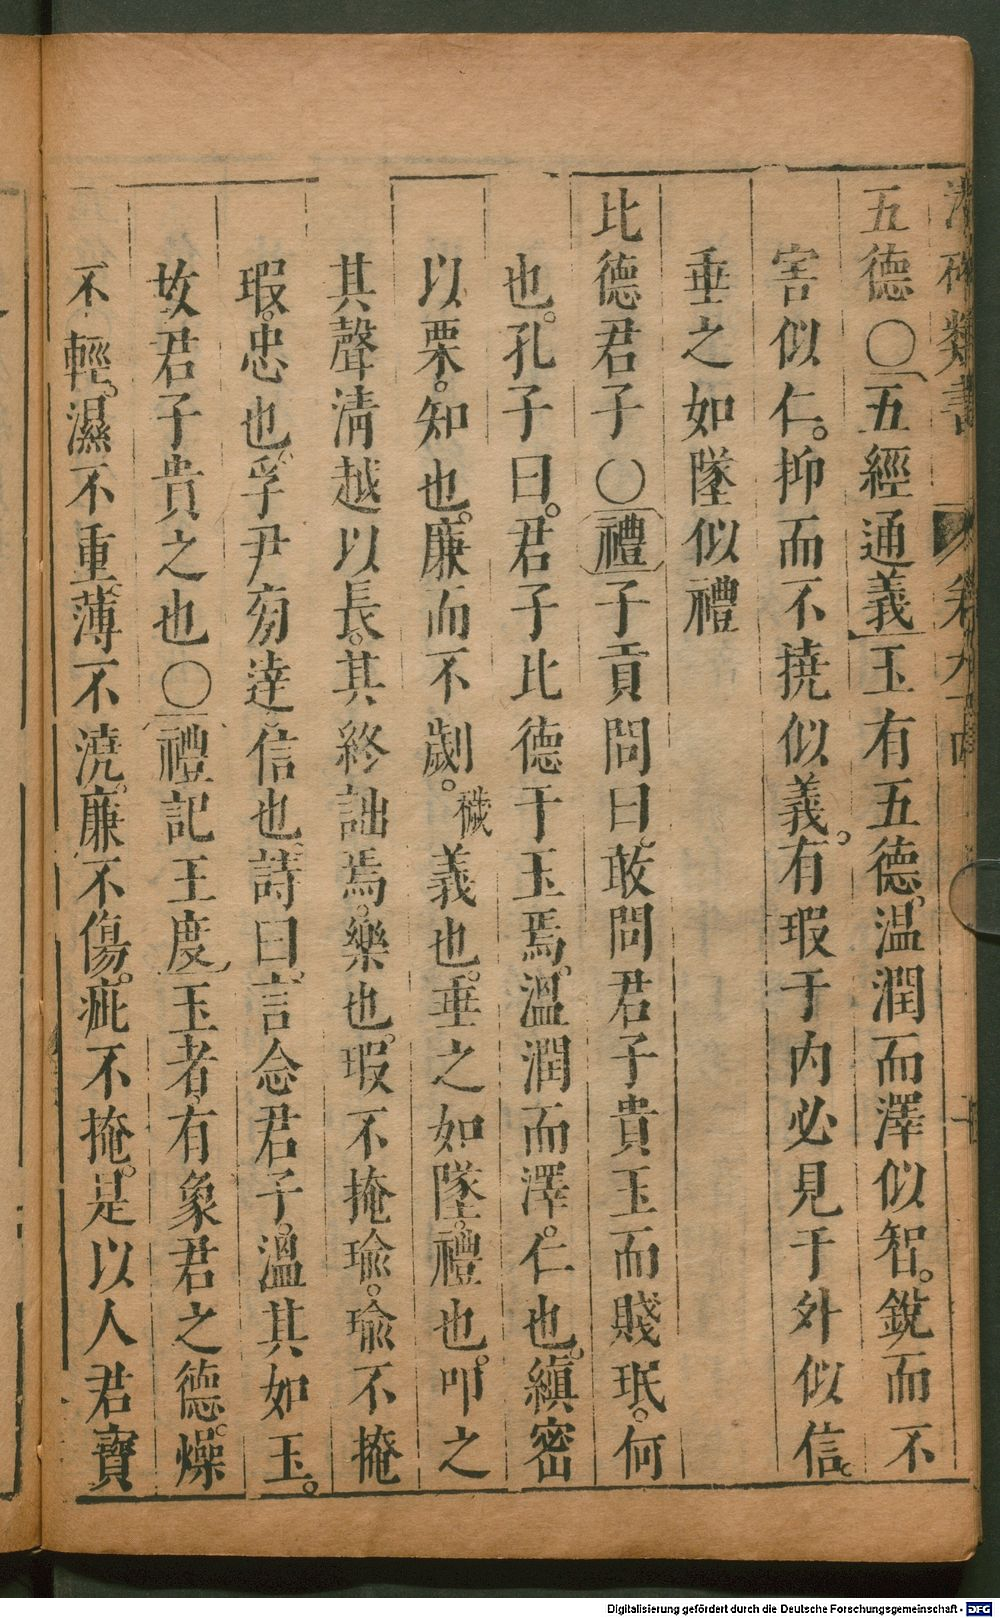 類書
五德〇五經通義玉有五德。温潤而澤似智。銳而不
害似仁。抑而不撓似義。有瑕于内必見于外似信。
垂之如墜似禮
比德君子〇禮子貢問曰。敢問君子貴玉而賤珉。何
也。孔子曰。君子比德于玉焉。溫潤而澤。仁也。縝密
以栗。知也。廉而不劌。穢義也。垂之如墜。禮也。叩之
其聲清越以長。其終詘焉。樂也。瑕不掩瑜。瑜不掩
瑕。忠也。孚尹旁達信也。詩曰。言念君子。溫其如玉。
故君子貴之也〇禮記王度玉者。有象君之德。燥
不輕。濕不重。薄不澆。廉不傷。疵不掩。是以人君寶
Digitalisierung gefördert durch die Deutsche Forschungsgemeinschaft - DFG